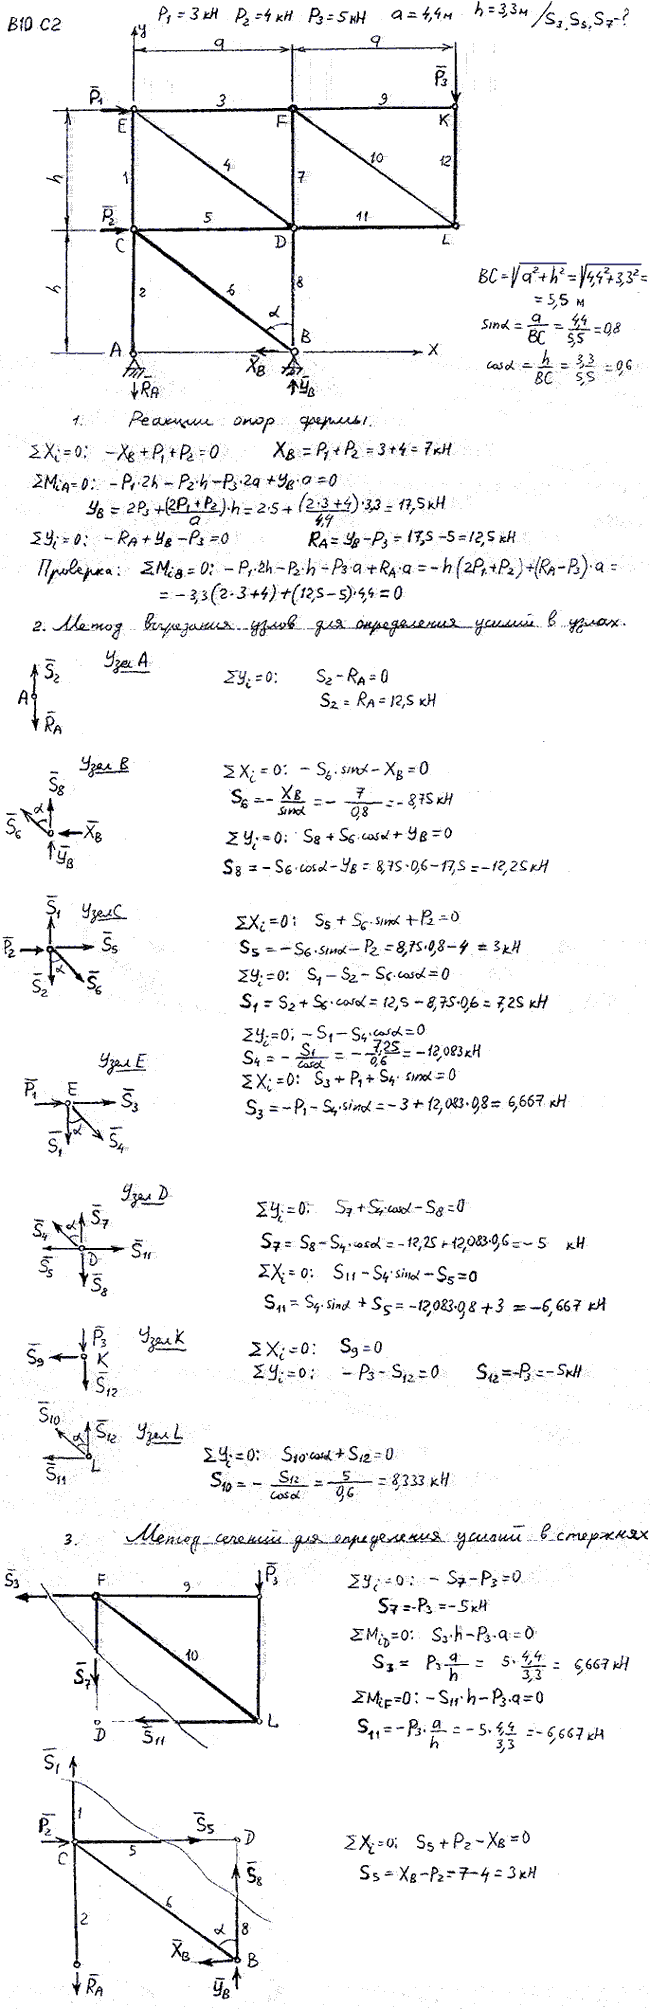 B10 C2
P₁ = 3 кН P₂ = 4 кН P₃ = 5 кН a = 4,4 м h = 3,3 м / S₃, S₅, S₇ - ?
y
a a
P̄₃
P̄₁ 3 9
E F K
h 1 4 7 10 12
P̄₂ 5 11
C D L
h 2 6 8
α
A B X
X̄_B
R̄_A Ȳ_B
BC = √(a² + h²) = √(4,4² + 3,3²) =
= 5,5 м
sinα = a/BC = 4,4/5,5 = 0,8
cosα = h/BC = 3,3/5,5 = 0,6
1. Реакции опор фермы.
ΣXᵢ = 0: -X_B + P₁ + P₂ = 0 X_B = P₁ + P₂ = 3 + 4 = 7 кН
ΣM_iA = 0: -P₁·2h - P₂·h - P₃·2a + Y_B·a = 0
Y_B = 2P₃ + (2P₁ + P₂)/a · h = 2·5 + (2·3 + 4)/4,4 · 3,3 = 17,5 кН
ΣYᵢ = 0: -R_A + Y_B - P₃ = 0 R_A = Y_B - P₃ = 17,5 - 5 = 12,5 кН
Проверка: ΣM_iB = 0: -P₁·2h - P₂·h - P₃·a + R_A·a = -h(2P₁ + P₂) + (R_A - P₃)·a =
= -3,3(2·3 + 4) + (12,5 - 5)·4,4 = 0
2. Метод вырезания узлов для определения усилий в узлах.
Узел A
S̄₂
A
R̄_A
ΣYᵢ = 0: S₂ - R_A = 0
S₂ = R_A = 12,5 кН
Узел B
S̄₈
S̄₆ α X̄_B
Ȳ_B
ΣXᵢ = 0: -S₆·sinα - X_B = 0
S₆ = - X_B/sinα = - 7/0,8 = -8,75 кН
ΣYᵢ = 0: S₈ + S₆·cosα + Y_B = 0
S₈ = -S₆·cosα - Y_B = 8,75·0,6 - 17,5 = -12,25 кН
Узел C
S̄₁
P̄₂ S̄₅
α
S̄₂ S̄₆
ΣXᵢ = 0: S₅ + S₆·sinα + P₂ = 0
S₅ = -S₆·sinα - P₂ = 8,75·0,8 - 4 = 3 кН
ΣYᵢ = 0: S₁ - S₂ - S₆·cosα = 0
S₁ = S₂ + S₆·cosα = 12,5 - 8,75·0,6 = 7,25 кН
Узел E
P̄₁ E S̄₃
α
S̄₁ S̄₄
ΣYᵢ = 0: -S₁ - S₄·cosα = 0
S₄ = - S₁/cosα = - 7,25/0,6 = -12,083 кН
ΣXᵢ = 0: S₃ + P₁ + S₄·sinα = 0
S₃ = -P₁ - S₄·sinα = -3 + 12,083·0,8 = 6,667 кН
Узел D
S̄₄ α S̄₇
S̄₁₁
S̄₅ D
S̄₈
ΣYᵢ = 0: S₇ + S₄·cosα - S₈ = 0
S₇ = S₈ - S₄·cosα = -12,25 + 12,083·0,6 = -5 кН
ΣXᵢ = 0: S₁₁ - S₄·sinα - S₅ = 0
S₁₁ = S₄·sinα + S₅ = -12,083·0,8 + 3 = -6,667 кН
Узел K
P̄₃
S̄₉ K
S̄₁₂
ΣXᵢ = 0: S₉ = 0
ΣYᵢ = 0: -P₃ - S₁₂ = 0 S₁₂ = -P₃ = -5 кН
Узел L
S̄₁₀ α S̄₁₂
S̄₁₁ L
ΣYᵢ = 0: S₁₀·cosα + S₁₂ = 0
S₁₀ = - S₁₂/cosα = 5/0,6 = 8,333 кН
3. Метод сечений для определения усилий в стержнях
S̄₃ F 9 P̄₃
10
S̄₇
D S̄₁₁ L
ΣYᵢ = 0: -S₇ - P₃ = 0
S₇ = -P₃ = -5 кН
ΣM_iD = 0: S₃·h - P₃·a = 0
S₃ = P₃·a/h = 5·4,4/3,3 = 6,667 кН
ΣM_iF = 0: -S₁₁·h - P₃·a = 0
S₁₁ = -P₃·a/h = -5·4,4/3,3 = -6,667 кН
S̄₁
1
P̄₂ S̄₅ D
C 5
S̄₈
2 6 α 8
X̄_B B
R̄_A Ȳ_B
ΣXᵢ = 0: S₅ + P₂ - X_B = 0
S₅ = X_B - P₂ = 7 - 4 = 3 кН